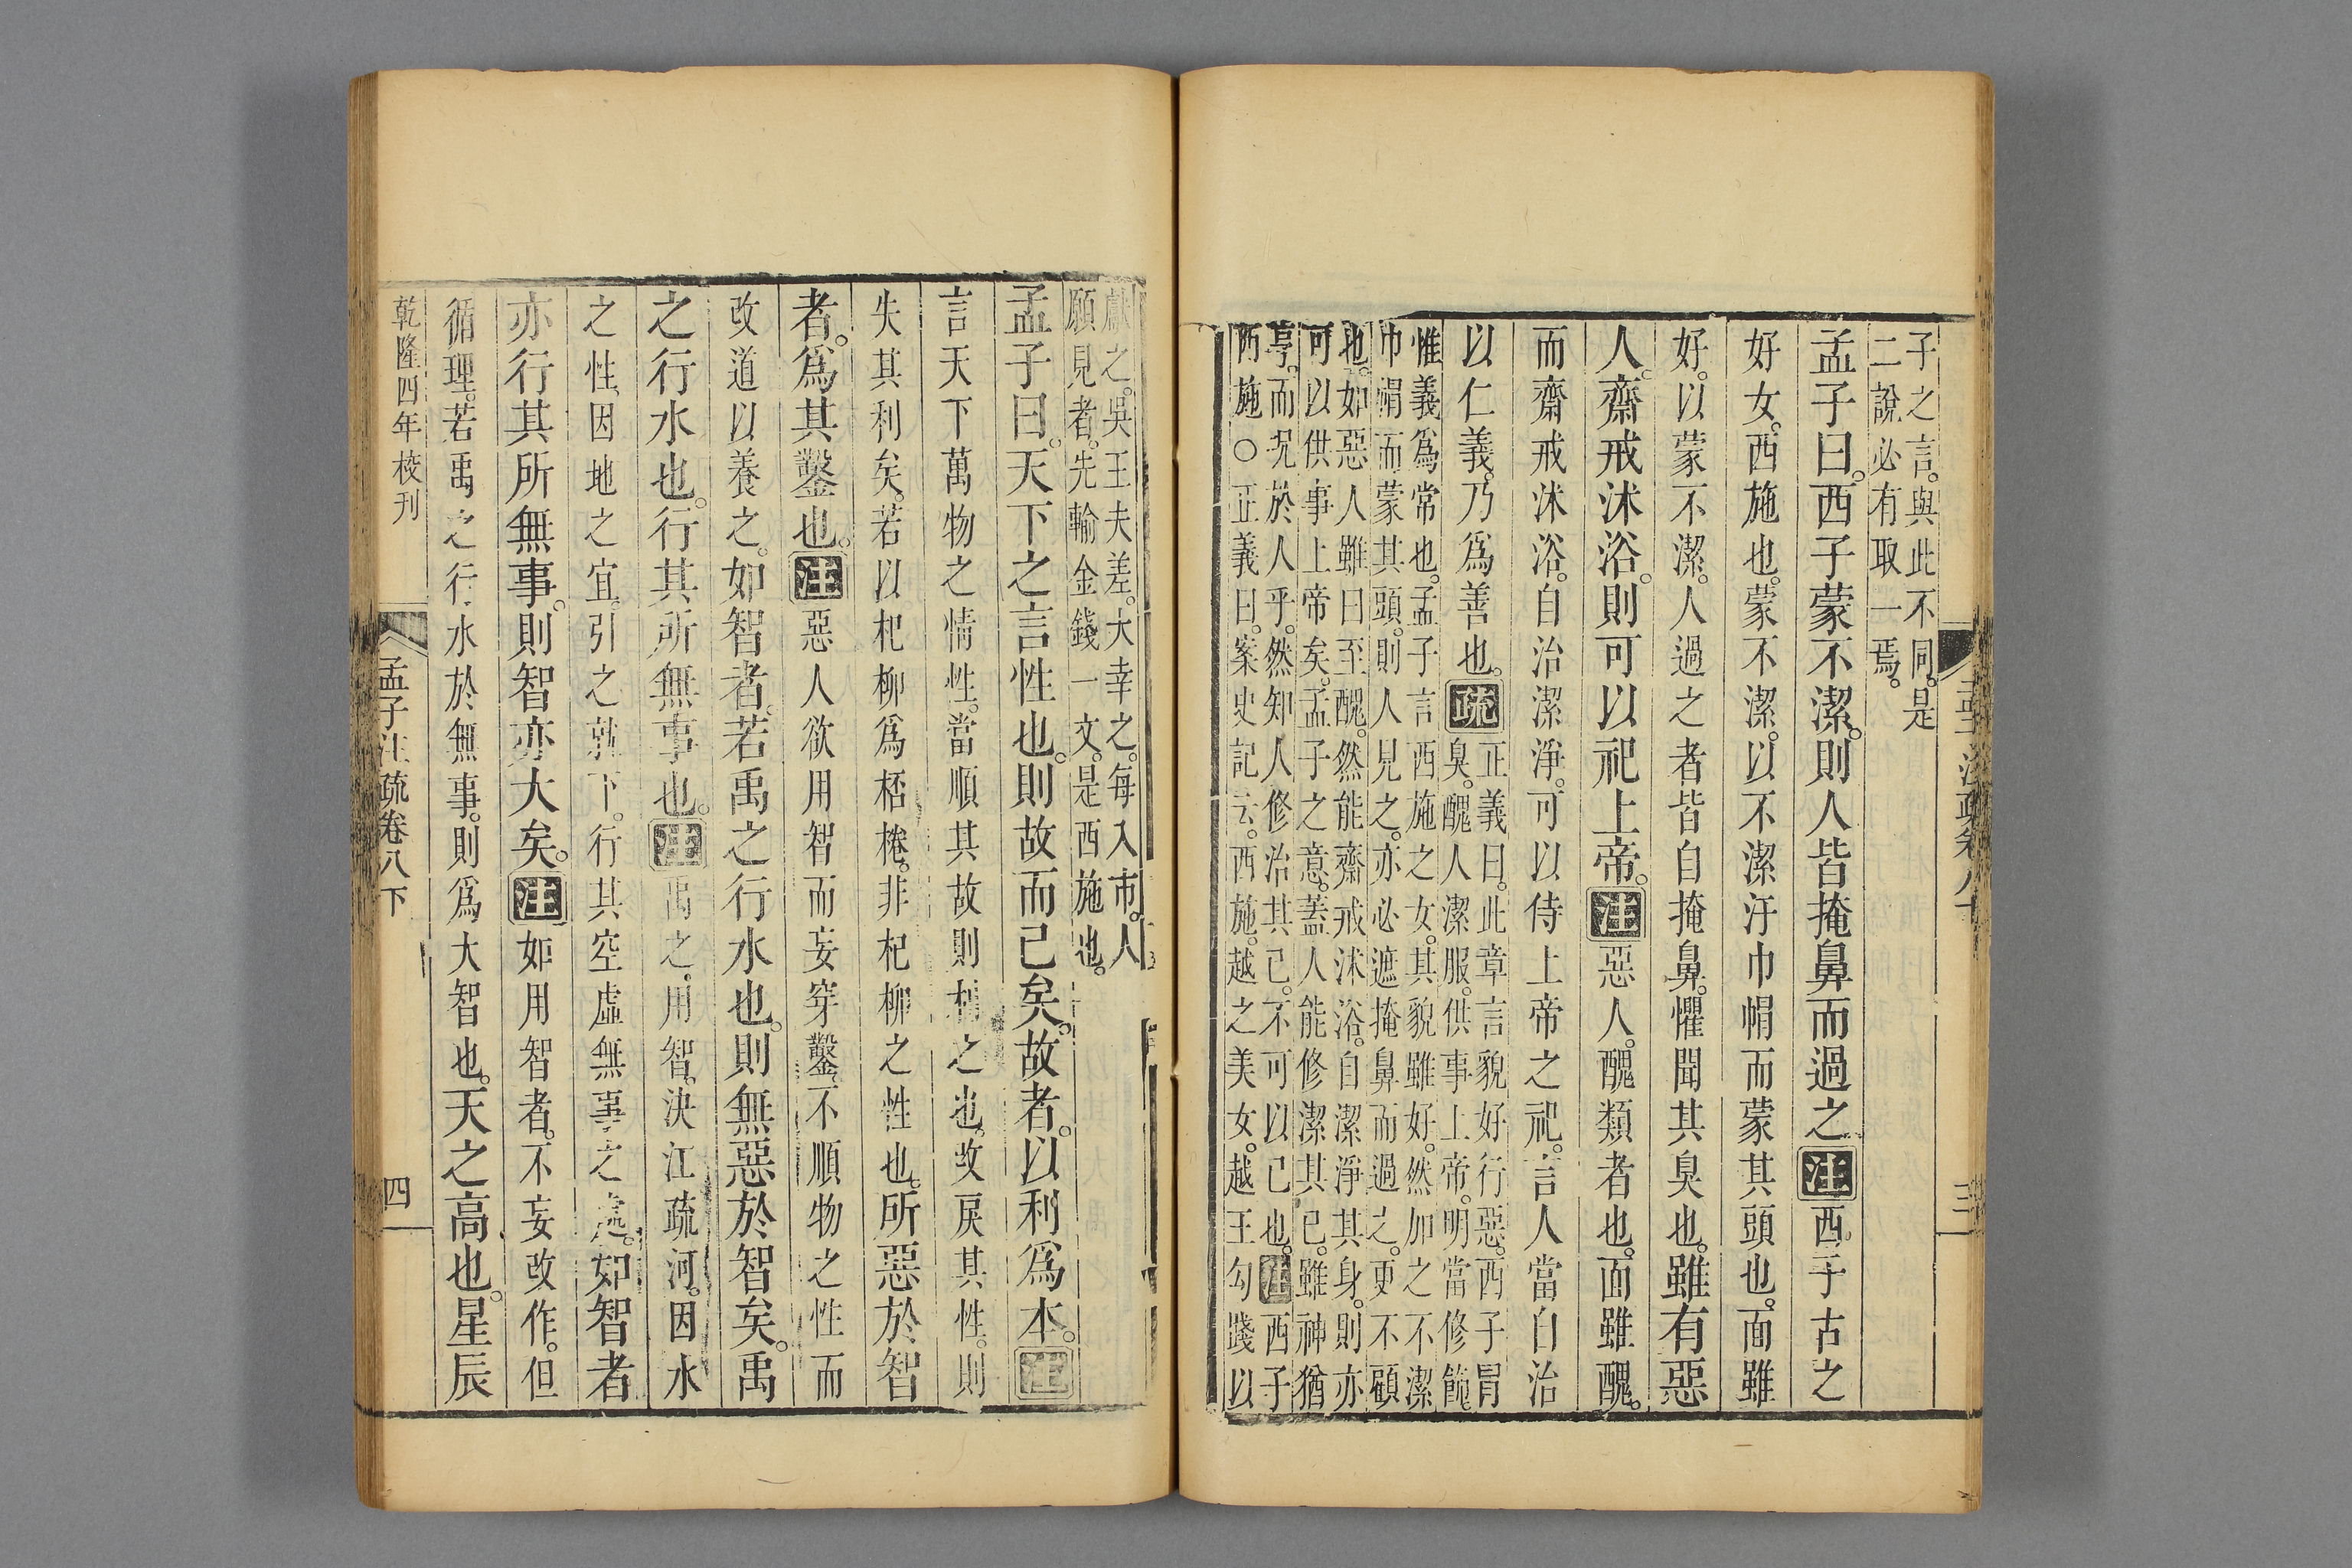 子之言。與此不同。是
二說必有取一焉。
孟子曰。西子蒙不潔。則人皆掩鼻而過之注西子古之
好女。西施也。蒙不潔。以不潔汙巾帽而蒙其頭也。面雖
好。以蒙不潔。人過之者皆自掩鼻。懼聞其臭也。雖有惡
人。齋戒沐浴。則可以祀上帝。注惡人。醜類者也。面雖醜。
而齋戒沐浴。自治潔淨。可以侍上帝之祀。言人當自治
以仁義。乃爲善也。疏
正義曰。此章言貌好行惡。西子冒
臭。醜人潔服。供事上帝。明當修飾
惟義爲常也。孟子言西施之女。其貌雖好。然加之不潔
巾帽而蒙其頭。則人見之。亦必遮掩鼻而過之。更不顧
也。如惡人雖曰至醜。然能齋戒沐浴。自潔淨其身。則亦
可以供事上帝矣。孟子之意。蓋人能修潔其已。雖神猶
享。而況於人乎。然知人修治其已。不可以已也。注西子
西施○正義曰。案史記云。西施。越之美女。越王勾踐以
孟子注疏卷八下
三
獻之。吳王夫差。大幸之。每入市。人
願見者。先輸金錢一文。是西施也。
孟子曰。天下之言性也。則故而已矣。故者。以利爲本。注
言天下萬物之情性。當順其故則利之也。改戾其性。則
失其利矣。若以杞柳爲桮棬。非杞柳之性也。所惡於智
者。爲其鑿也。注惡人欲用智而妄穿鑿。不順物之性而
改道以養之。如智者。若禹之行水也。則無惡於智矣。禹
之行水也。行其所無事也。注禹之用智。決江疏河。因水
之性。因地之宜。引之就下。行其空虛無事之處。如智者
亦行其所無事。則智亦大矣。注如用智者。不妄改作。但
循理。若禹之行水於無事。則爲大智也。天之高也。星辰
乾隆四年校刊
孟子注疏卷八下
四